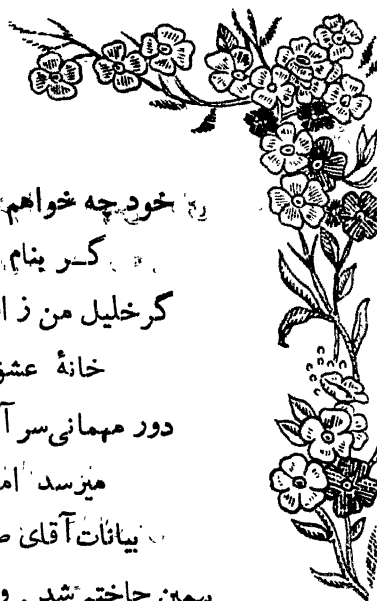 خود چه خواهم
گــر بنام
گر خلیل من ز ا
خانهٔ عشق
دور مهمانی سر آ
میرسد ام
بیانات آقای ص
بهمین جا ختم شد . و